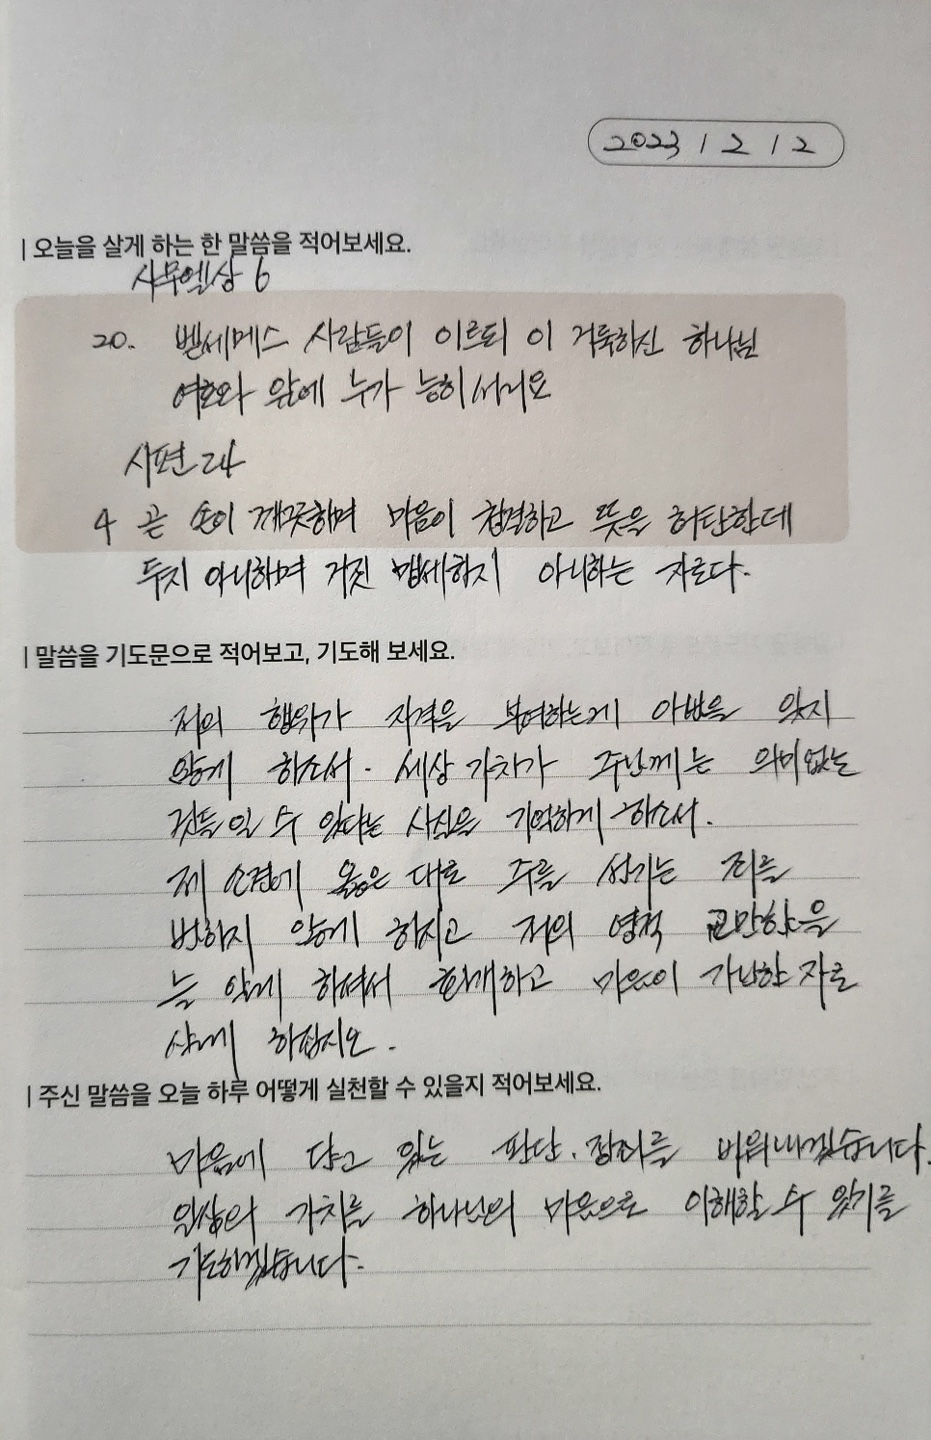 2023 1 2 1 2
| 오늘을 살게 하는 한 말씀을 적어보세요.
사무엘상 6
20. 벧세메스 사람들이 이르되 이 거룩하신 하나님
여호와 앞에 누가 능히 서리요
시편 24
4 곧 손이 깨끗하며 마음이 청결하고 뜻을 허탄한데
두지 아니하며 거짓 맹세하지 아니하는 자로다.
| 말씀을 기도문으로 적어보고, 기도해 보세요.
저의 행위가 자격을 부여하는게 아님을 잊지
않게 하소서. 세상 가치가 주님께는 의미없는
것들일 수 있다는 사실을 기억하게 하소서.
제 소견에 옳은 대로 주를 섬기는 죄를
범하지 않게 하시고 저의 영적 교만함을
늘 알게 하셔서 회개하고 마음이 가난한 자로
살게 하십시오.
| 주신 말씀을 오늘 하루 어떻게 실천할 수 있을지 적어보세요.
마음에 담고 있는 판단. 잣대를 비워내겠습니다.
일상의 가치를 하나님의 마음으로 이해할 수 있기를
기도하겠습니다.